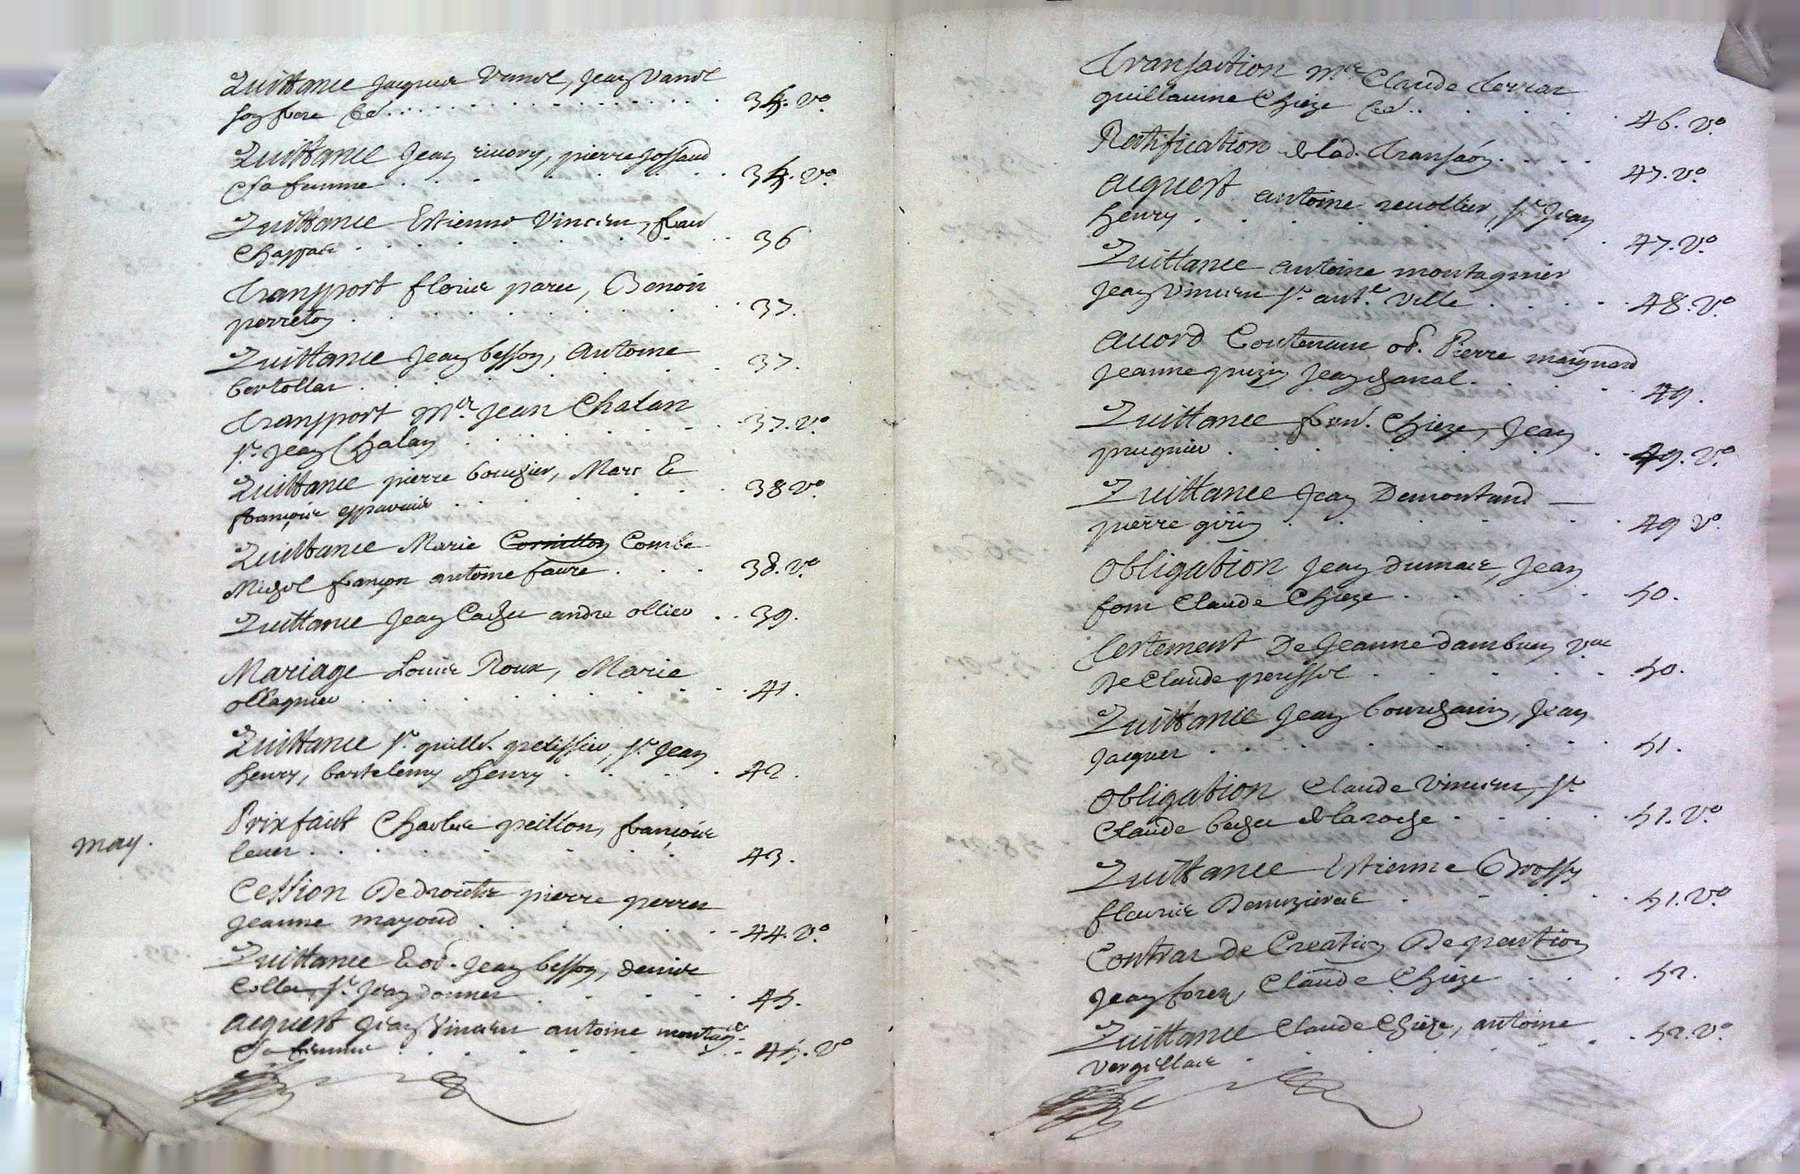 Quittance Jacques Vanel, Jean Vanel
son frere &c. 35. vo
Quittance Jean rivory, pierre Jossand
& sa femme 35. vo
Quittance Estienne Vincien, fran
Chappuis 36
Transport florie parec, Benoit
perreton 37.
Quittance Jean besson, Antoine
bertollar 37.
Transport Mer Jean Chalan
sr Jean Chalan 37. vo
Quittance pierre bourgier, Marc &
françoise 38 vo
Quittance Marie Cornillon Combe
Michel françon antoine faure 38. vo
Quittance Jean andre ollier 39.
Mariage Louise Roux, Marie
ollagnier 41.
Quittance sr guillè. gretissieu, sr Jean
henry, bartelemy henry 42.
may.
Prixfaict Charles peillon, françoise
43.
Cession De droicts pierre perret
Jeanne mayoud 44. vo
Quittance & ob. Jean besson, denise
Collet, sr Jean donnet 45.
Acquest Jean Vincien antoine montagr
& sa femme 45. vo
Transaction Mre Claude Terrat
guillaume Chieze &c. 46. vo
Ratification de lad. Transaon. 47. vo
Acquest antoine revollier, sr Jean
henry 47. vo
Quittance antoine montagnier
Jean Vincien sr ante. Ville 48. vo
Accord Contenant ob. Pierre maignard
Jeanne Jean chanal. 49.
Quittance fran. Chieze, Jean
prugnier 49. vo
Quittance Jean Demontand
pierre girin 49 vo
Obligation Jean dumas, Jean
font Claude Chieze 50.
Testement De Jeanne dambuen vve
De Claude perissol 50.
Quittance Jean bourchanin, Jean
Jacquet 51.
Obligation Claude Vincien, sr
Claude de la roche 51. vo
Quittance Estienne Brossy
fleurie 51. vo
Contrat de Creation De pention
Jean forez, Claude Chieze 52.
Quittance Claude Chieze, antoine
Vergillac 52. vo